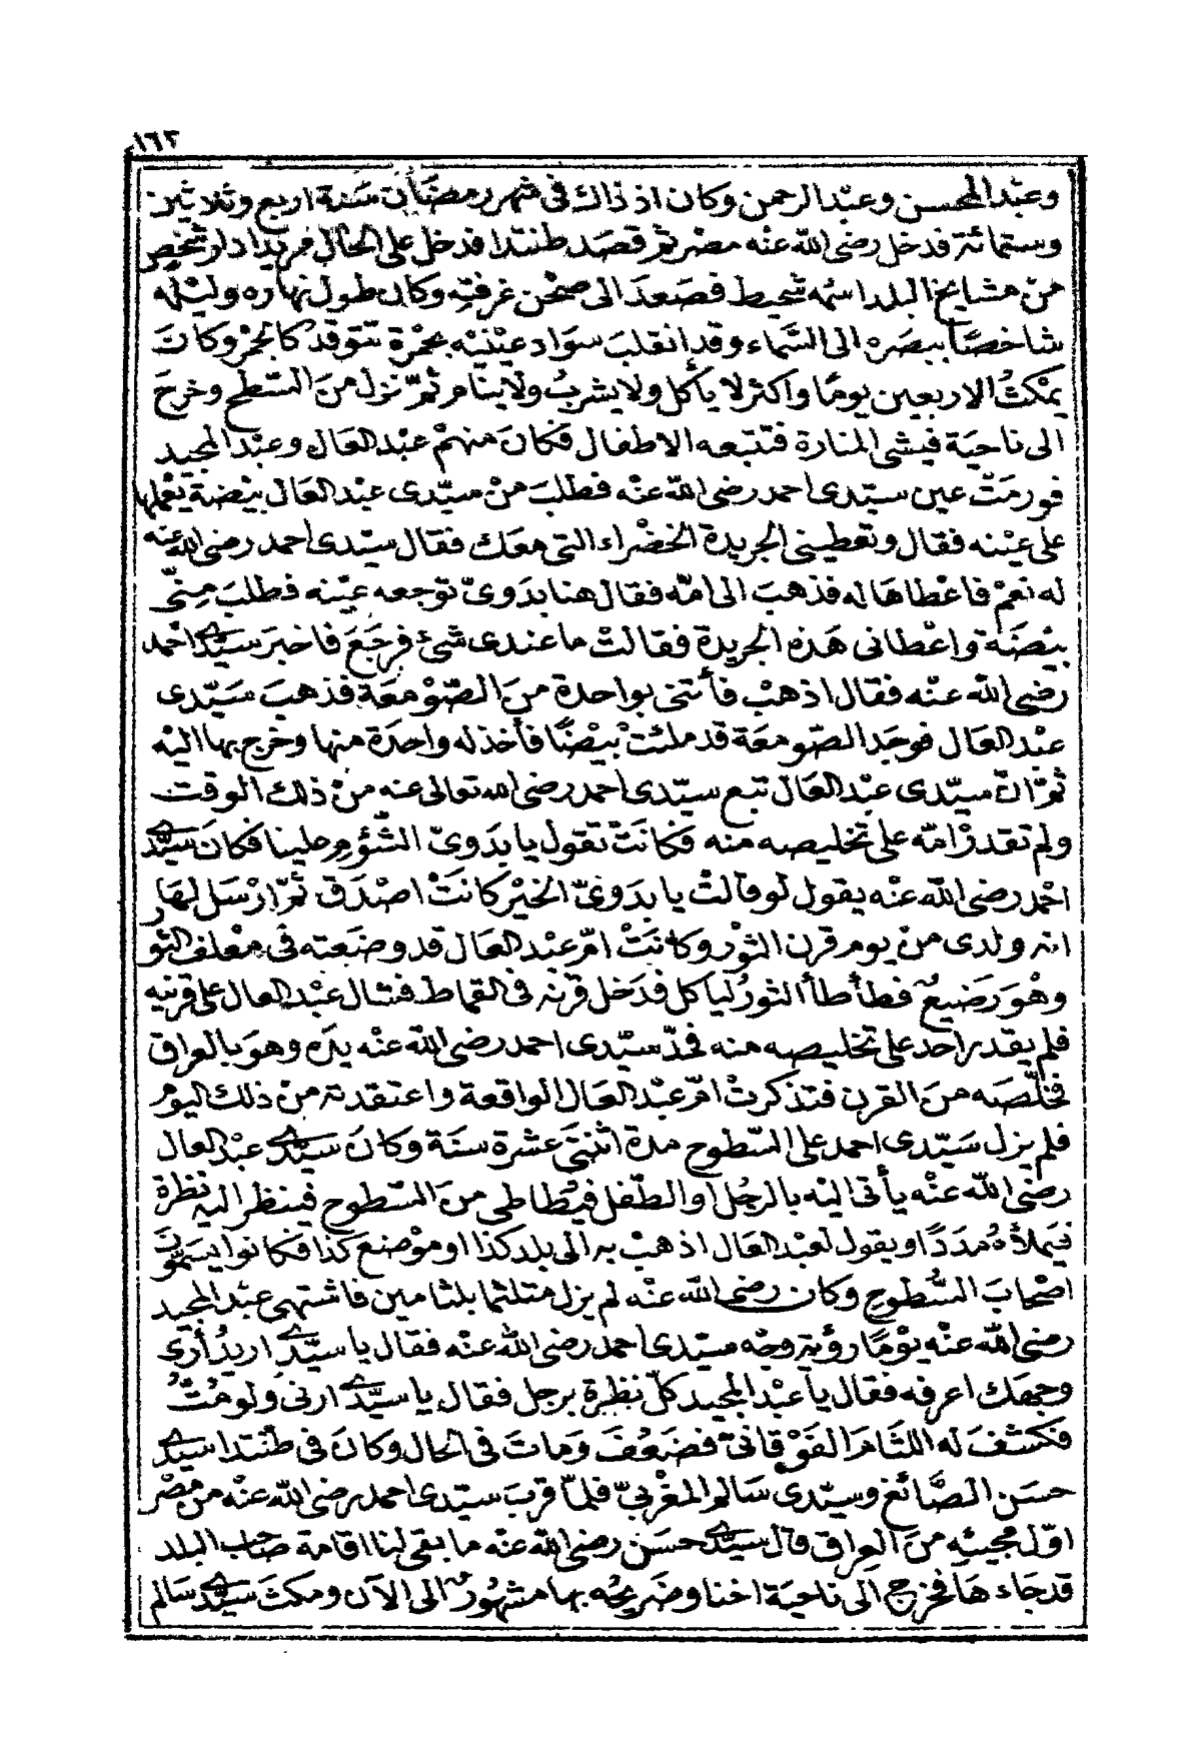 ١٦٢
وعبد المحسن وعبد الرحمن وكان اذ ذاك فى شهر رمضان سنة اربع وثلاثين
وستمائة فدخل رضى الله عنه مصر ثم قصد طنتدا فدخل على الحال مريدا دار شخص
من مشايخ البلد اسمه شحيط فصعد الى صحن غرفته وكان طول نهاره وليله
شاخصا ببصره الى السماء وقد انقلب سواد عينيه بحمرة تتوقد كالجمر وكان
يمكث الاربعين يوما واكثر لا يأكل ولا يشرب ولا ينام ثم نزل من السطح وخرج
الى ناحية فيشى المنارة فتتبعه الاطفال فكان منهم عبد العال وعبد المجيد
فورمت عين سيدى احمد رضى الله عنه فطلب من سيدى عبد العال بيضة يعملها
على عينه فقال وتعطينى الجريدة الخضراء التى معك فقال سيدى احمد رضى الله عنه
له نعم فاعطاها له فذهب الى امه فقال هنا بدوى توجعه عينه فطلب منى
بيضة واعطانى هذه الجريدة فقالت ما عندى شئ فرجع فاخبر سيدى احمد
رضى الله عنه فقال اذهب فأتنى بواحدة من الصومعة فذهب سيدى
عبد العال فوجد الصومعة قد ملئت بيضا فأخذ له واحدة منها وخرج بها اليه
ثم ان سيدى عبد العال تبع سيدى احمد رضى الله تعالى عنه من ذلك الوقت
ولم تقدر امه على تخليصه منه فكانت تقول يا بدوى الشؤم علينا فكان سيدى
احمد رضى الله عنه يقول لو قالت يا بدوى الخير كانت اصدق ثم ارسل لها
انه ولدى من يوم قرن الثور وكانت ام عبد العال قد وضعته فى معلف الثور
وهو رضيع فطأطأ الثور ليأكل فدخل قرنه فى القماط فشال عبد العال على قرنيه
فلم يقدر احد على تخليصه منه فمد سيدى احمد رضى الله عنه يده وهو بالعراق
فخلصه من القرن فتذكرت ام عبد العال الواقعة واعتقدته من ذلك اليوم
فلم يزل سيدى احمد على السطوح مدة اثنتى عشرة سنة وكان سيدى عبد العال
رضى الله عنه يأتى اليه بالرجل او الطفل فيطاطى من السطوح فينظر اليه نظرة
فيملأه مددا ويقول لعبد العال اذهب به الى بلد كذا او موضع كذا فكانوا يسمون
اصحاب السطوح وكان رضى الله عنه لم يزل متلثما بلثامين فاشتهى عبد المجيد
رضى الله عنه يوما رؤية وجه سيدى احمد رضى الله عنه فقال يا سيدى اريد أرى
وجهك اعرفه فقال يا عبد المجيد كل نظرة برجل فقال يا سيدى ارنى ولو مُتّ
فكشف له اللثام الفوقانى فضعف ومات فى الحال وكان فى طنتدا سيدى
حسن الصائغ وسيدى سالم المغربى فلما قرب سيدى احمد رضى الله عنه من مصر
اول مجيئه من العراق قال سيدى حسن رضى الله عنه ما بقى لنا اقامة صاحب البلد
قد جاءها فخرج الى ناحية اخنا وضريحه بها مشهور الى الآن ومكث سيدى سالم